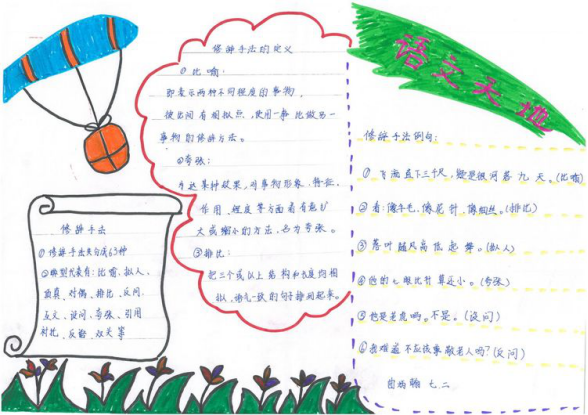 语文天地
修辞手法的定义
①比喻:
即表示两种不同程度的事物,
彼此间有相似点,使用一事比做另一
事物的修辞方法。
②夸张:
为达某种效果,对事物形象、特征,
作用、程度等方面着有意扩
大或缩小的方法,名为夸张。
③排比:
把三个或以上结构和长度均相
似、语气一致的句子排列起来。
修辞手法
①修辞手法共有63种
②典型代表有:比喻、拟人、
顶真、对偶、排比、反问、
反文、设问、夸张、引用
对比、反语、双关等
修辞手法例句:
①飞流直下三千尺,疑是银河落九天。(比喻)
②看:像牛毛,像花针,像细丝。(排比)
③落叶随风高低起舞。(拟人)
④他的心眼比针尖还小。(夸张)
⑤他是老虎吗。不是。(设问)
⑥我难道不应该尊敬老人吗?(反问)
七.二